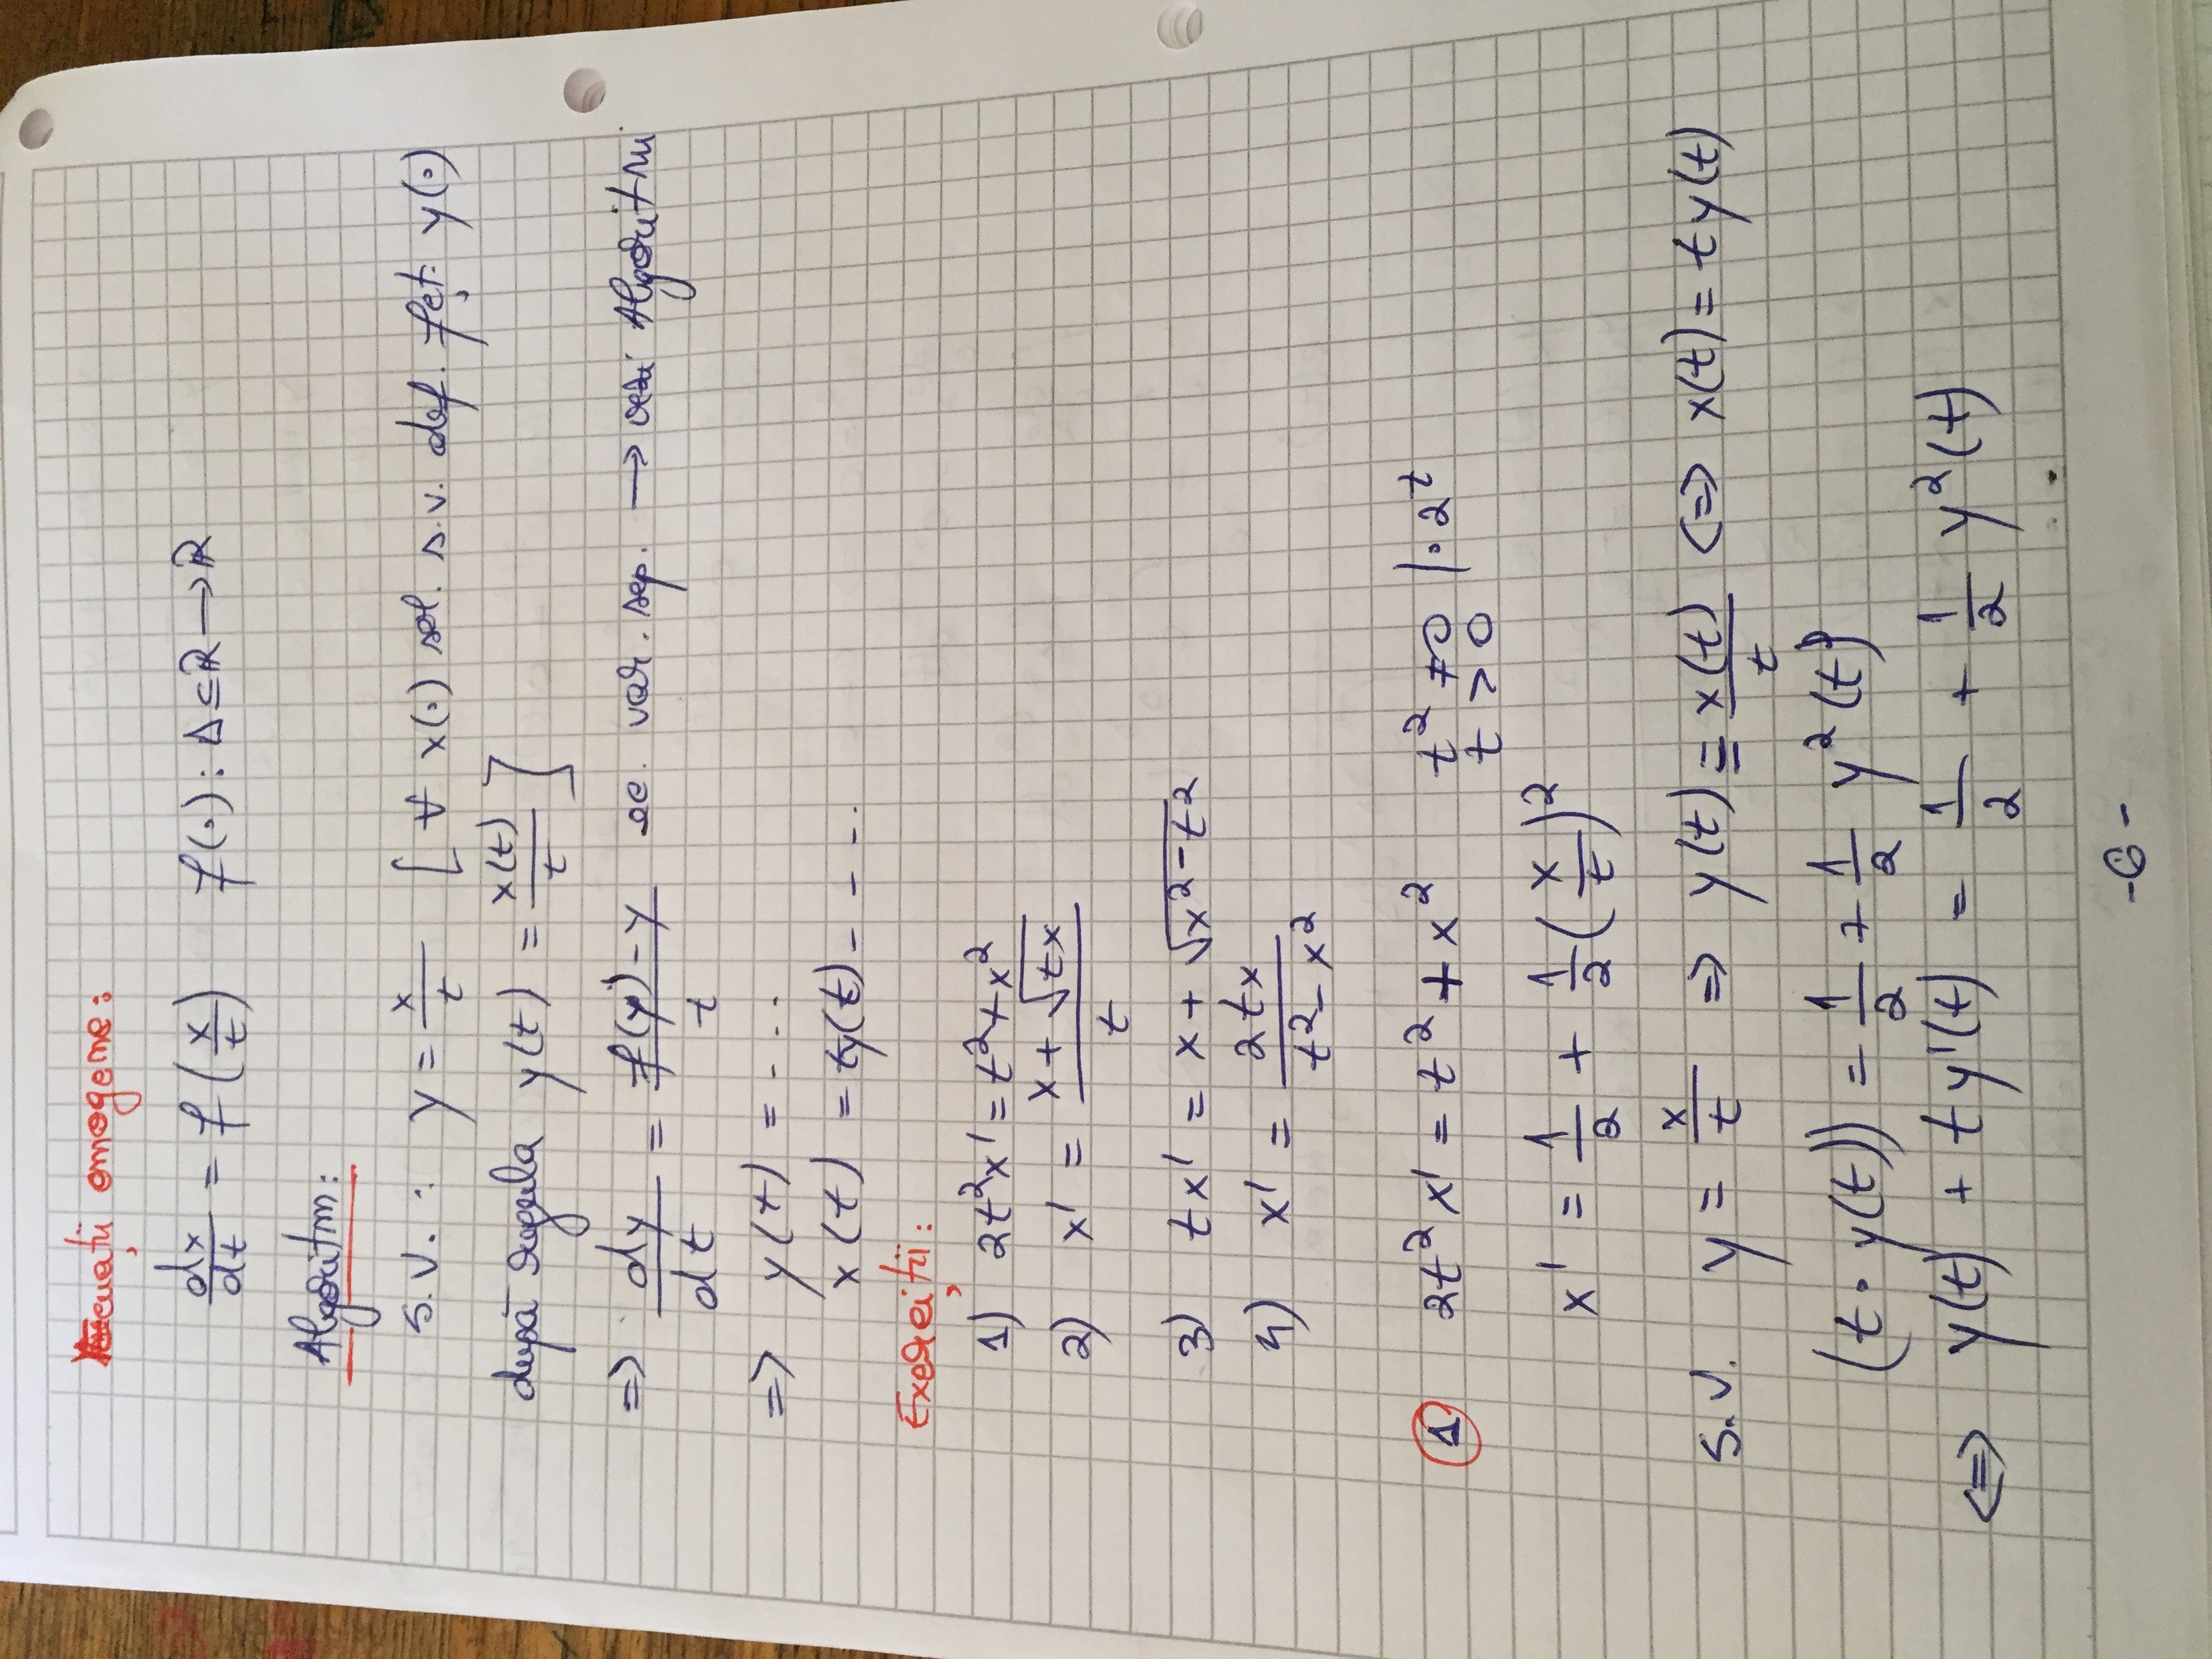 Ecuații omogene:
dx/dt = f(x/t)    f(·): Δ⊆ℝ→ℝ
Algoritm:
s.v. : y = x/t  [∀ x(·) sol. s.v. def. fct. y(·)
după regula y(t) = x(t)/t]
=> dy/dt = (f(y)-y)/t  ec. var. sep. → vezi Algoritmi
=> y(t) = - - -
x(t) = ty(t) - - - -
Exerciții:
1) 2t²x' = t²+x²
2) x' = (x+√(tx))/t
3) tx' = x+√(x²-t²)
4) x' = 2tx/(t²-x²)
1 2t²x' = t²+x²   t² ≠0 |· 2^t
t > 0
x' = 1/2 + 1/2 (x/t)²
s.v. y = x/t => y(t) = x(t)/t <=> x(t) = ty(t)
(t·y(t)) = 1/2 + 1/2 y²(t)
<=> y(t) + ty'(t) = 1/2 + 1/2 y²(t)
-6-